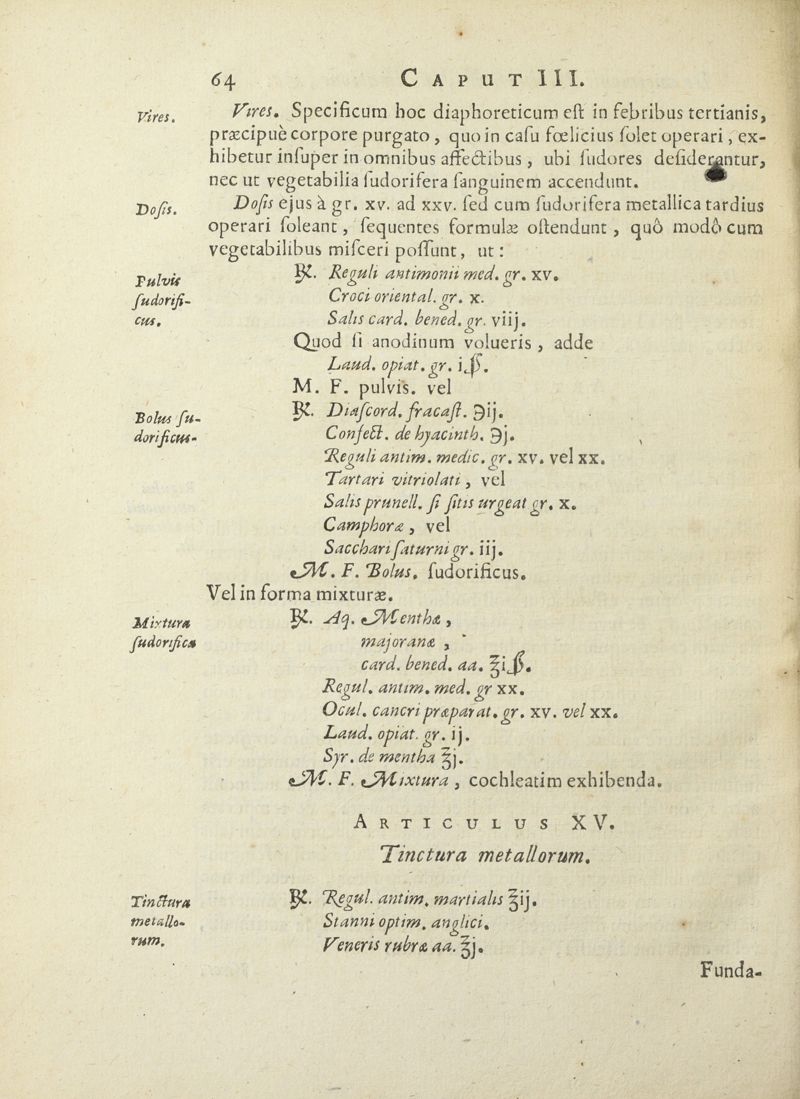 64 CAPUT III.
Vires.
Vires. Specificum hoc diaphoreticum eſt in febribus tertianis,
præcipuè corpore purgato, quo in caſu fœlicius ſolet operari, ex-
hibetur inſuper in omnibus affectibus, ubi ſudores deſiderantur,
nec ut vegetabilia ſudorifera ſanguinem accendunt.
Doſis.
Doſis ejus à gr. xv. ad xxv. ſed cum ſudorifera metallica tardius
operari ſoleant, ſequentes formulæ oſtendunt, quô modô cum
vegetabilibus miſceri poſſunt, ut:
Pulvis
ſudorifi-
cus.
℞. Reguli antimonii med. gr. xv.
Croci oriental. gr. x.
Salis card. bened. gr. viij.
Quod ſi anodinum volueris, adde
Laud. opiat. gr. iſſ.
M. F. pulvis. vel
Bolus ſu-
dorificus.
℞. Diaſcord. fracaſt. ℈ij.
Confect. de hyacinth. ℈j.
Reguli antim. medic. gr. xv. vel xx.
Tartari vitriolati, vel
Salis prunell. ſi ſitis urgeat gr. x.
Camphoræ, vel
Sacchari ſaturni gr. iij.
M. F. Bolus. ſudorificus.
Vel in forma mixturæ.
Mixtura
ſudorifica
℞. Aq. Menthæ,
majoranæ,
card. bened. aa. ℥iſſ.
Regul. antim. med. gr xx.
Ocul. cancri præparat. gr. xv. vel xx.
Laud. opiat. gr. ij.
Syr. de mentha ℥j.
M. F. Mixtura, cochleatim exhibenda.
ARTICULUS XV.
Tinctura metallorum.
Tinctura
metallo-
rum.
℞. Regul. antim. martialis ℥ij.
Stanni optim. anglici.
Veneris rubræ aa. ℥j.
Funda-